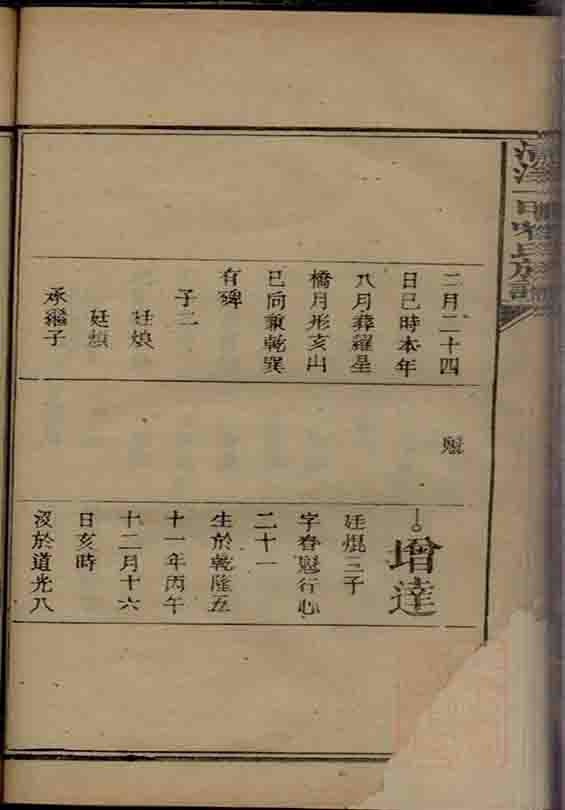 二月二十四
日巳時本年
八月葬羅星
橋月形亥山
巳向兼乾巽
有碑
子二
廷煥
廷
承繼子
魁
增達
廷焜三子
字春魁行心
二十一
生於乾隆五
十一年丙午
十二月十六
日亥時
歿於道光八